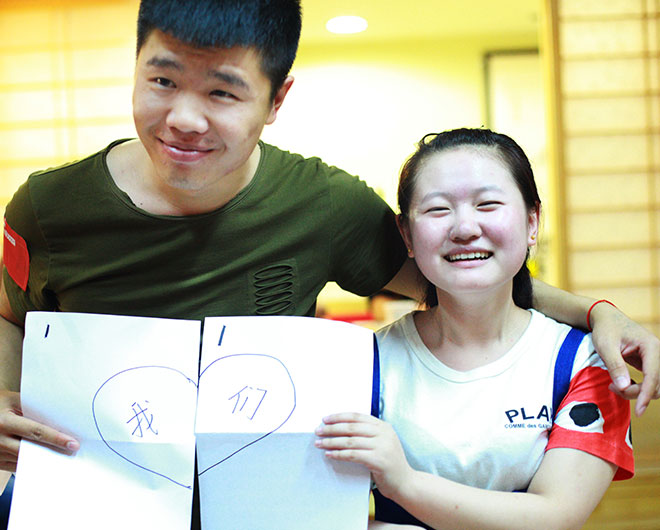 1
我
1
们
PLA
COMME des GAR